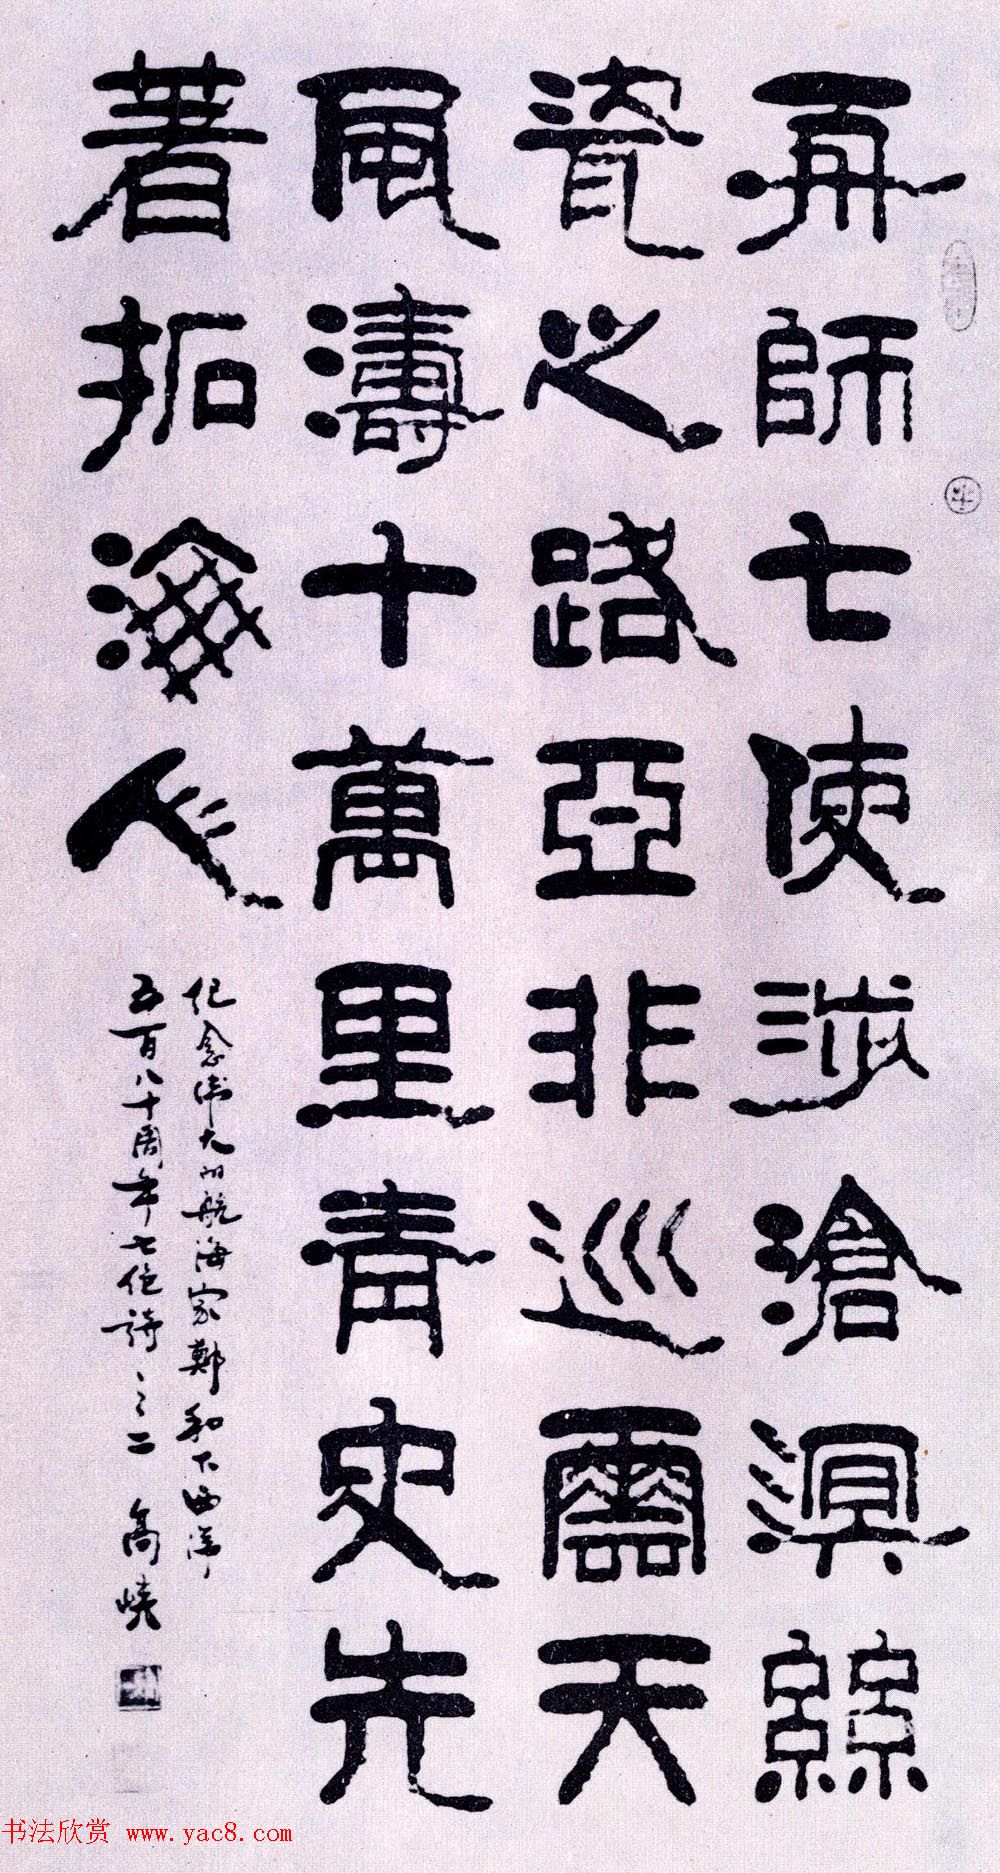 舟師七使涉滄溟絲
瓷之路亞非巡靁天
風濤十萬里青史先
著拓海人
纪念偉大的航海家鄭和下西洋
五百八十周年七绝詩之二 高峡
书法欣赏 www.yac8.com